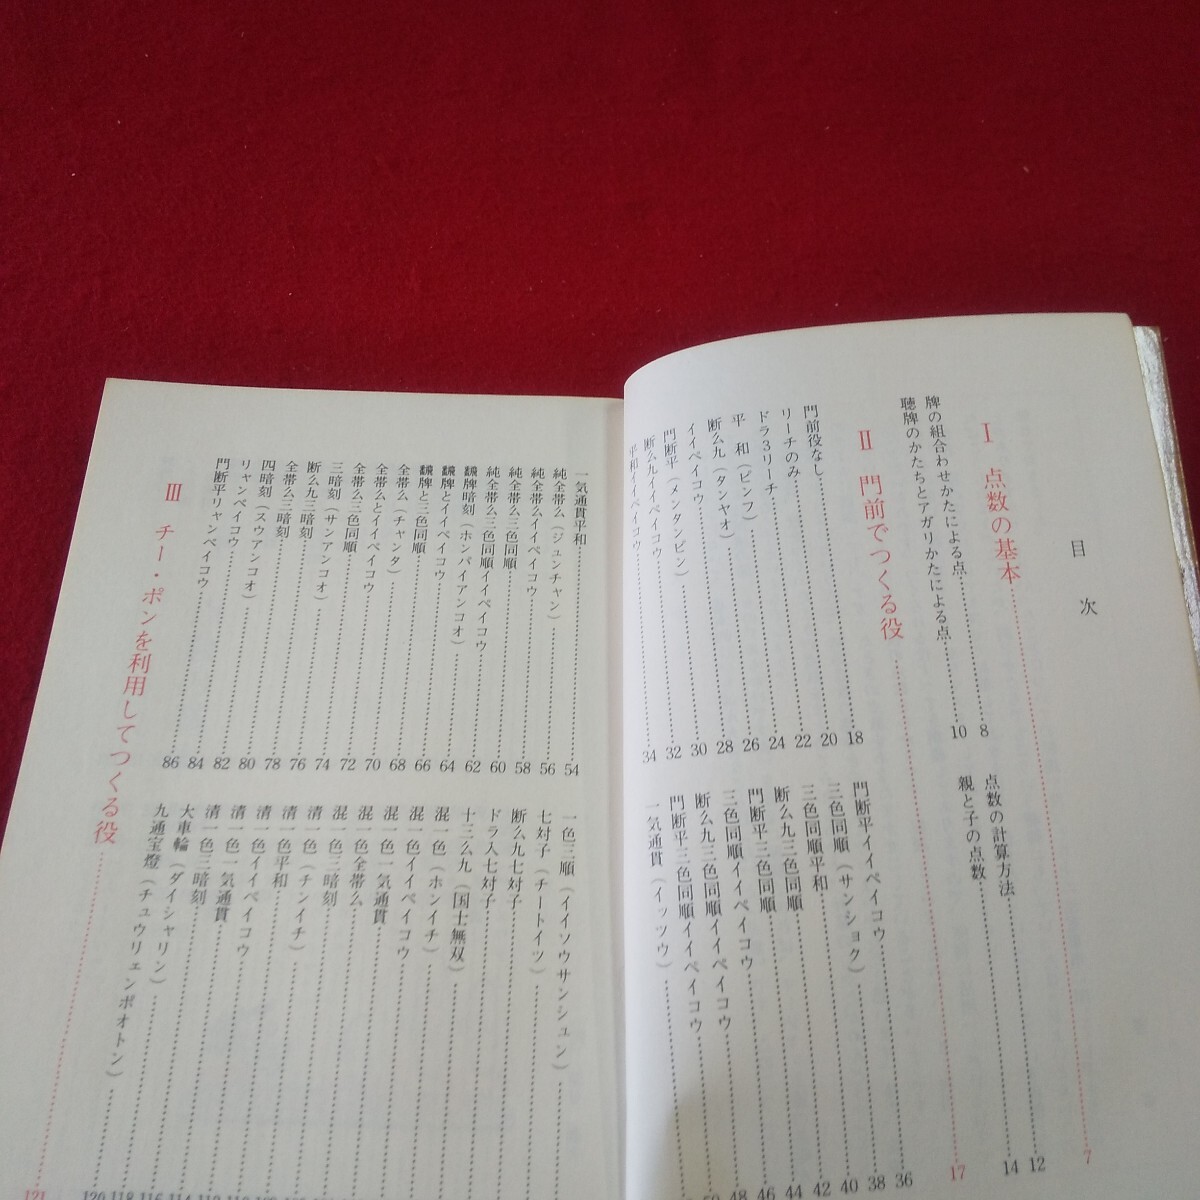 目次
Ⅰ 点数の基本 7
牌の組合わせかたによる点 8
聴牌のかたちとアガリかたによる点 10
点数の計算方法 12
親と子の点数 14
Ⅱ 門前でつくる役 17
門前役なし 18
リーチのみ 20
ドラ3リーチ 22
平和(ピンフ) 24
断么九(タンヤオ) 26
イイペイコウ 28
門断平(メンタンピン) 30
断么九イイペイコウ 32
平和イイペイコウ 34
門断平イイペイコウ 36
三色同順(サンショク) 38
三色同順平和 40
断么九三色同順 42
門断平三色同順 44
三色同順イイペイコウ 46
断么九三色同順イイペイコウ 48
門断平三色同順イイペイコウ
一気通貫(イッツウ)
一気通貫平和 54
純全帯么(ジュンチャン) 56
純全帯么イイペイコウ 58
純全帯么三色同順 60
純全帯么三色同順イイペイコウ 62
飜牌暗刻(ホンパイアンコオ) 64
飜牌とイイペイコウ 66
飜牌と三色同順 68
全帯么(チャンタ) 70
全帯么とイイペイコウ 72
全帯么三色同順 74
三暗刻(サンアンコオ) 76
断么九三暗刻 78
全帯么三暗刻 80
四暗刻(スウアンコオ) 82
リャンペイコウ 84
門断平リャンペイコウ 86
一色三順(イイソウサンシュン)
七対子(チートイツ)
断么九七対子
ドラ入七対子
十三么九(国士無双)
混一色(ホンイチ)
混一色イイペイコウ
混一色一気通貫
混一色全帯么
混一色三暗刻
清一色(チンイチ)
清一色平和
清一色イイペイコウ
清一色一気通貫
清一色三暗刻
大車輪(ダイシャリン)
九連宝燈(チュウリェンポオトン) 120
Ⅲ チー・ポンを利用してつくる役 121